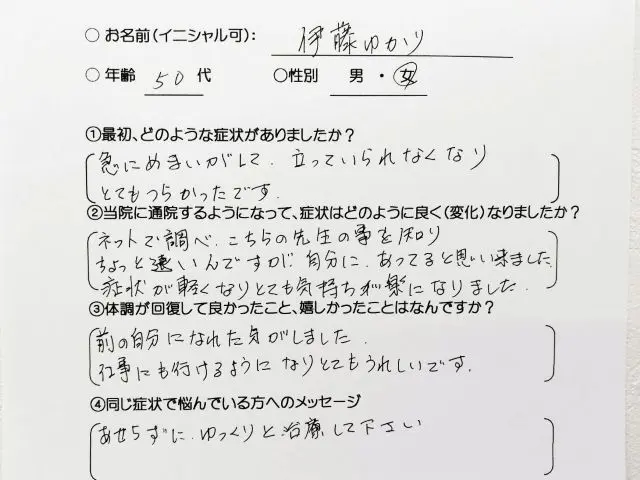 ○ お名前(イニシャル可): 伊藤ゆかり
○ 年齢 50 代 ○性別 男 ・ 女
①最初、どのような症状がありましたか?
急にめまいがして、立っていられなくなり
とてもつらかったです.
②当院に通院するようになって、症状はどのように良く(変化)なりましたか?
ネットで調べ、こちらの先生の事を知り
ちょっと遠いんですが自分に、あってると思い来ました
症状が軽くなりとても気持ちが楽になりました.
③体調が回復して良かったこと、嬉しかったことはなんですか?
前の自分になれた気がしました.
仕事にも行けるようになりとてもうれしいです.
④同じ症状で悩んでいる方へのメッセージ
あせらずに、ゆっくりと治療して下さい